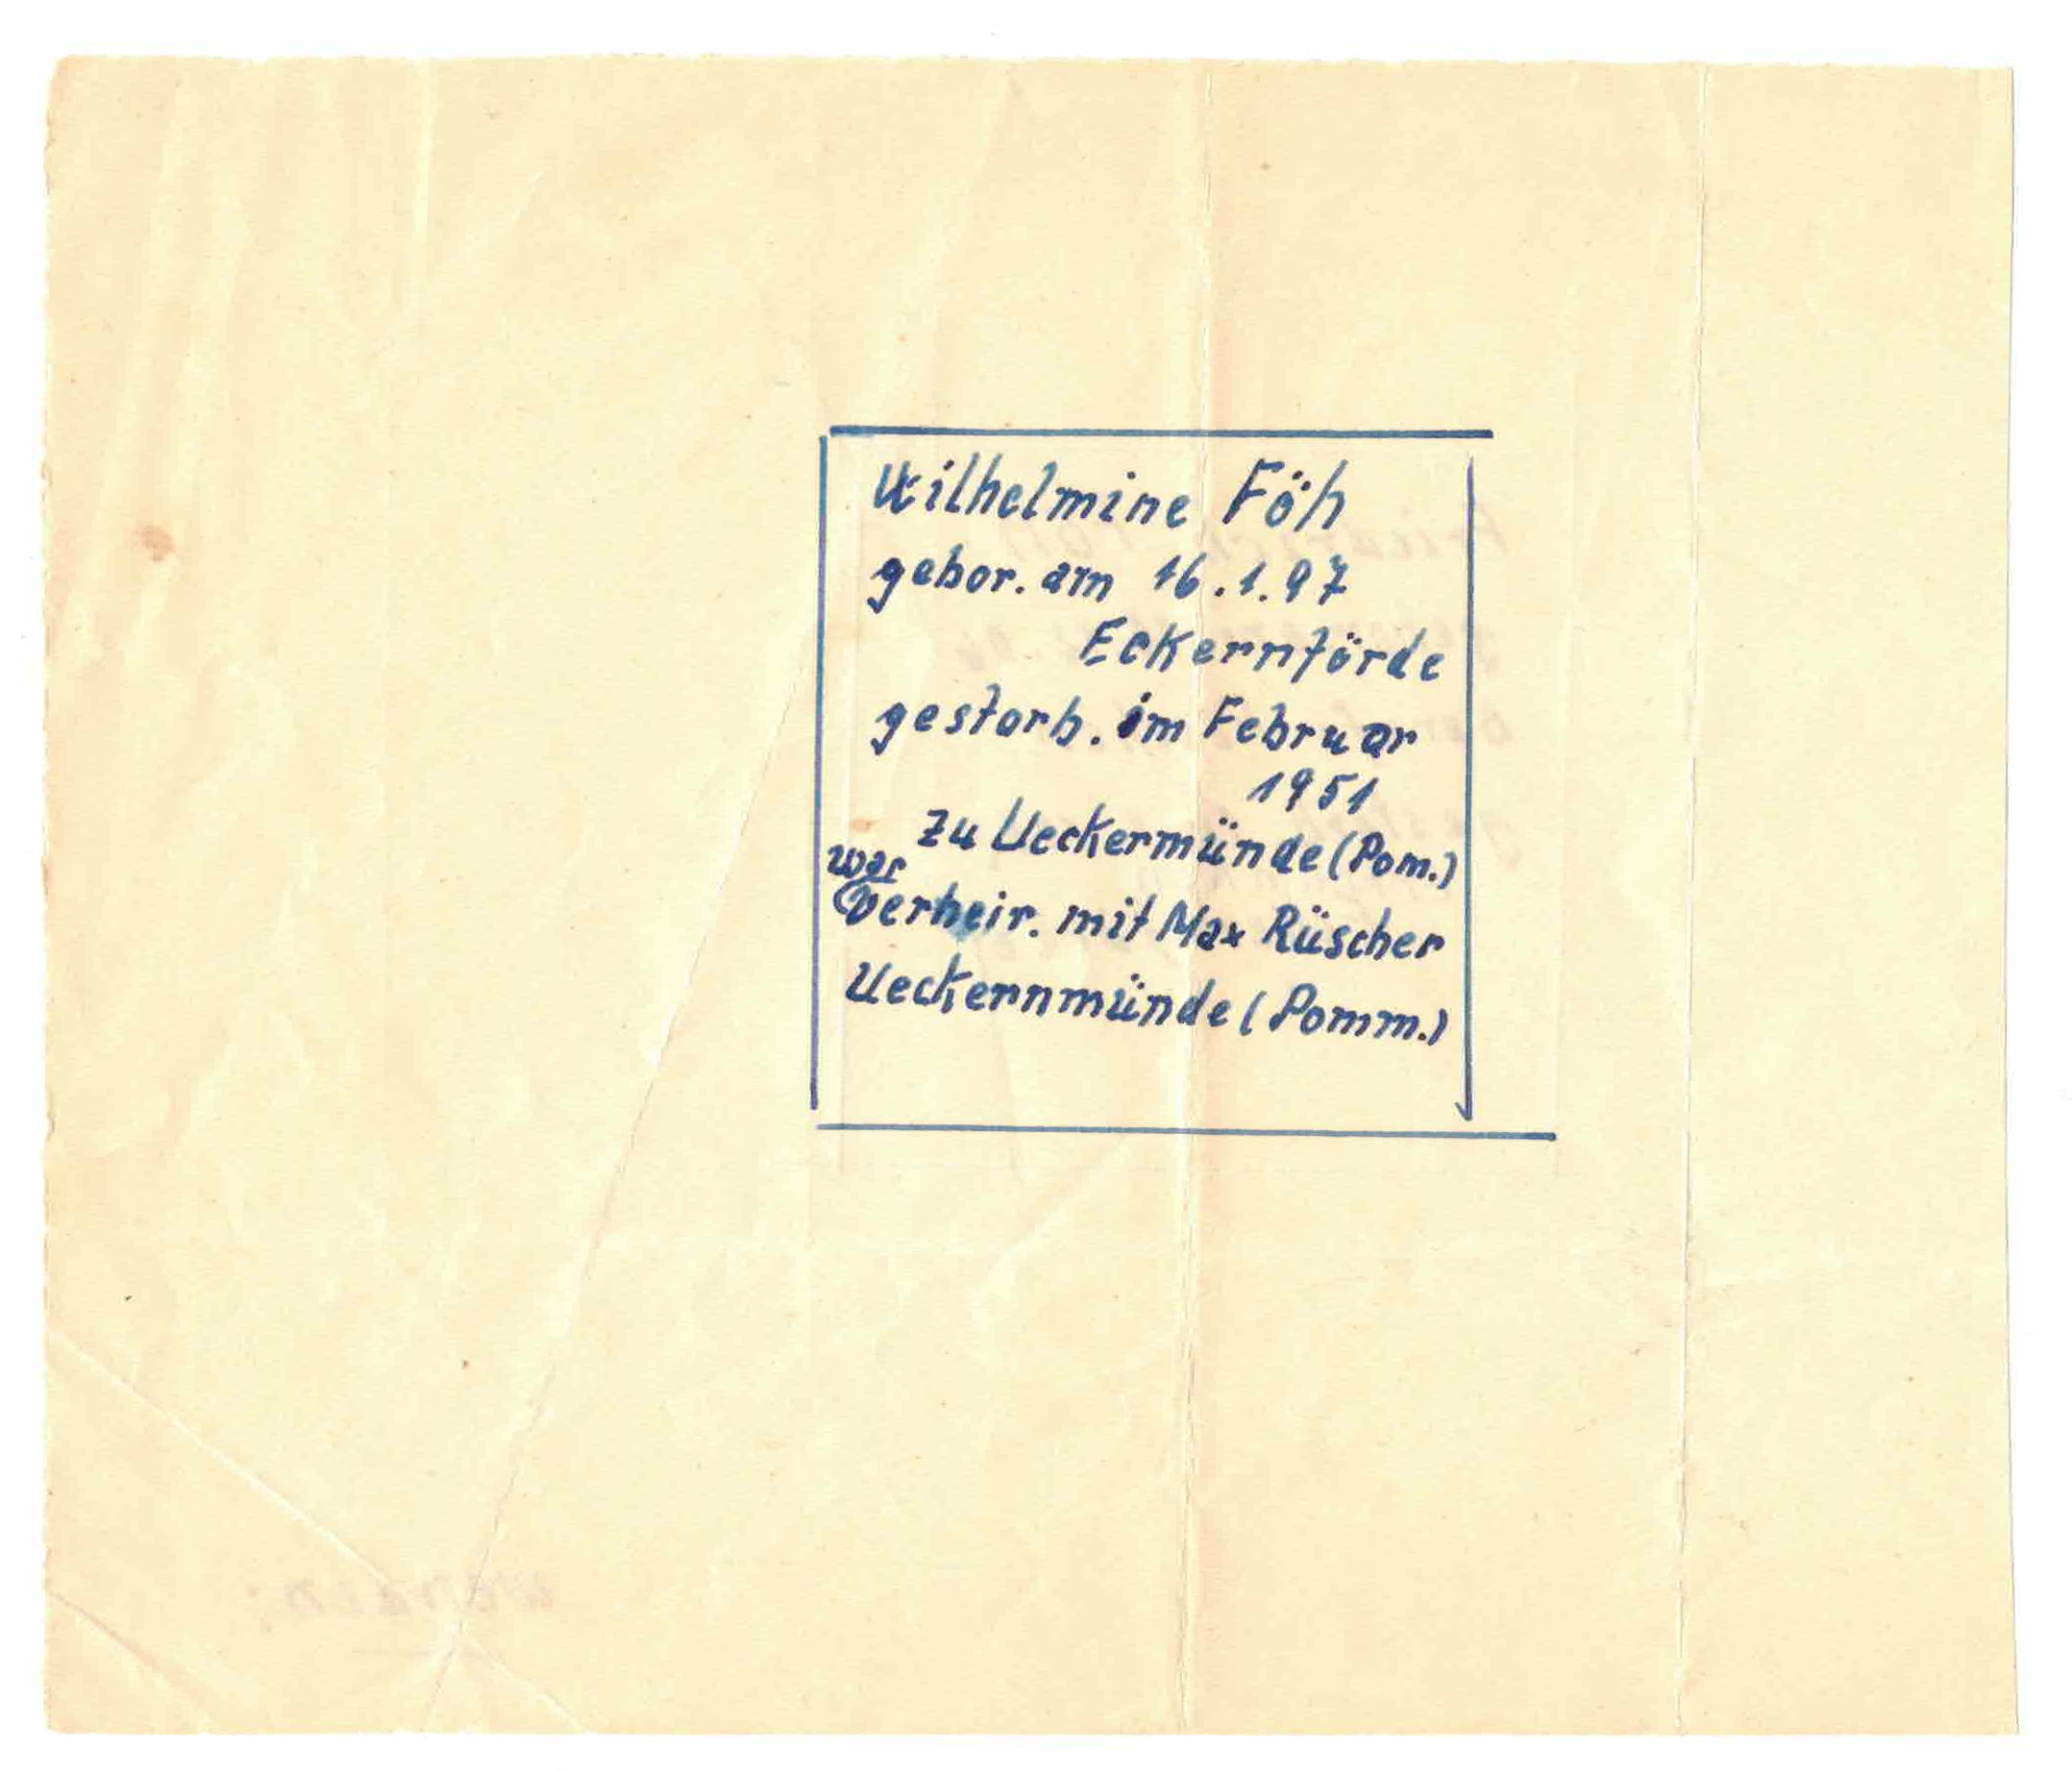 Wilhelmine Föh
gebor. am 16.1.97
Eckernförde
gestorb. im Februar
1951
zu Ueckermünde (Pom.)
war
verheir. mit Max Rüscher
Ueckernmünde (Pomm.)